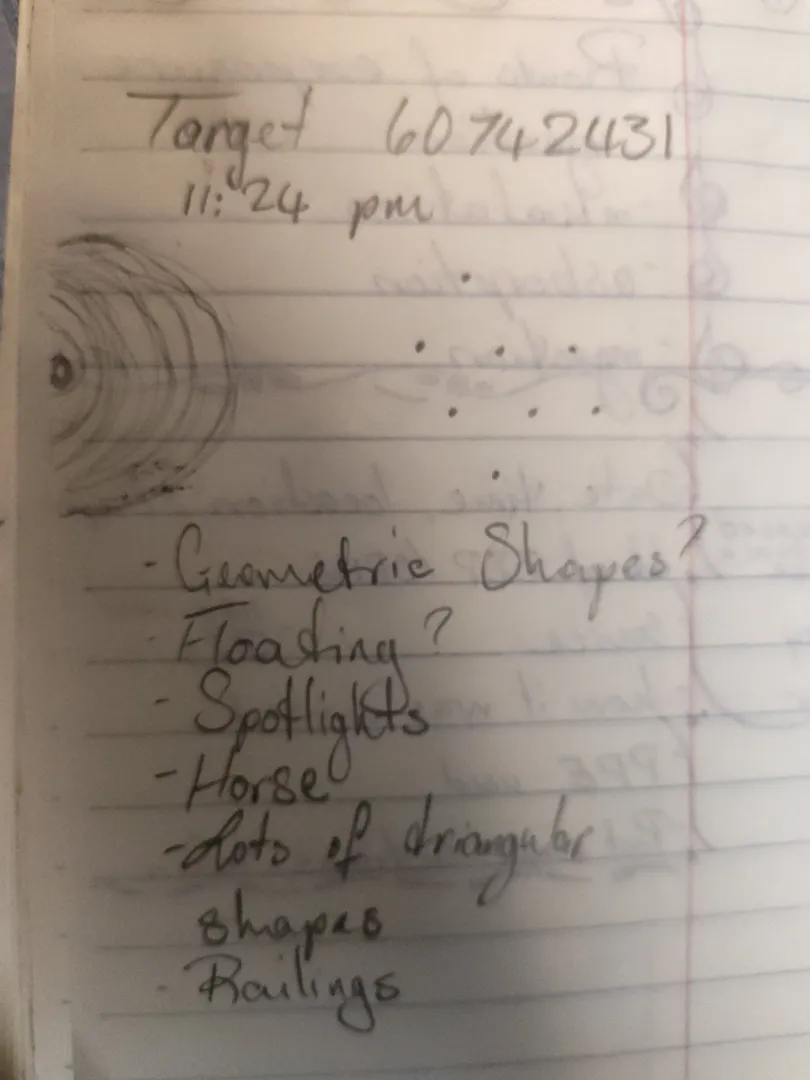 Target 60742431
11:24 pm
- Geometric Shapes?
- Floating?
- Spotlights
- Horse
- Lots of triangular
shapes
- Railings